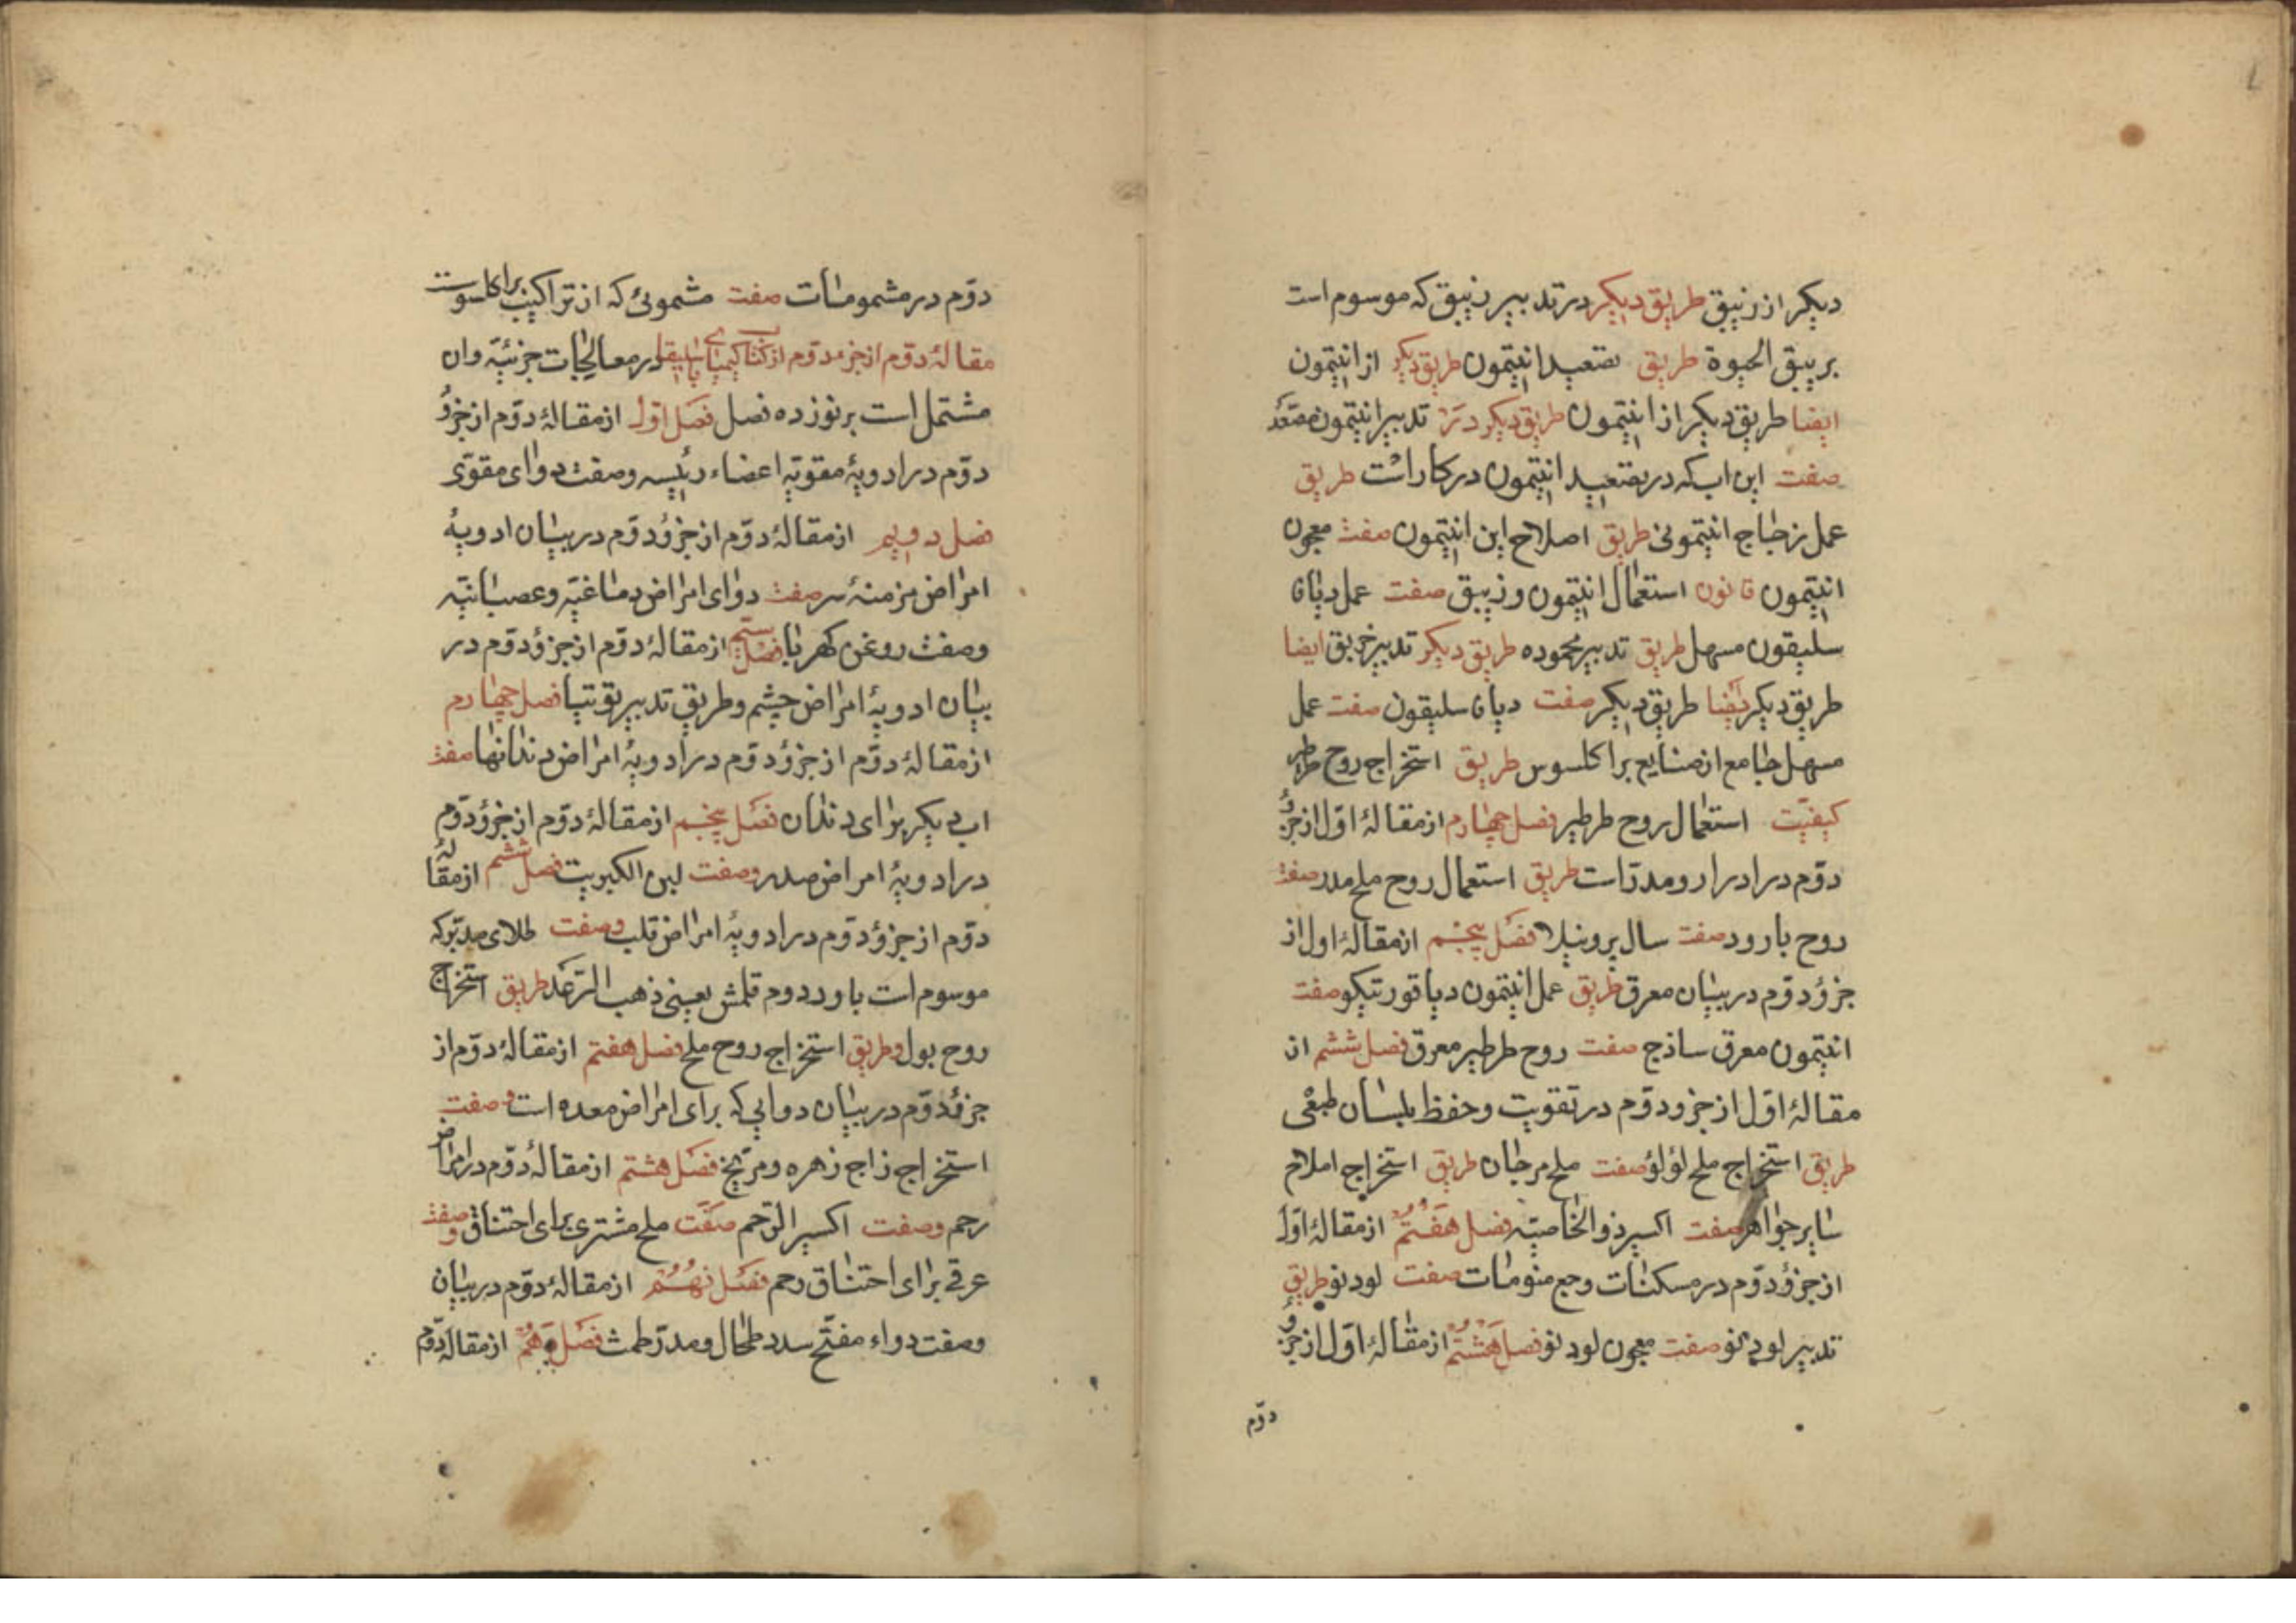 دیکر از زیبق طریق دیکر در تدبیر زیبق که موسوم است
بریبق الحیوة طریق تصعید انتیمون طریق دیکر از انتیمون
ایضا طریق دیکر از انتیمون طریق دیکر در تدبیر انتیمون مصعد
صفت این اب که در تصعید انتیمون در کار است طریق
عمل زجاج انتیمونی طریق اصلاح این انتیمون صفت معجون
انتیمون قانون استعمال انتیمون و زیبق صفت عمل دیانا
سلیقون مسهل طریق تدبیر محموده طریق دیکر تدبیر خربق ایضا
طریق دیکر ایضا طریق دیکر صفت دیانا سلیقون صفت عمل
مسهل جامع از صنایع براکلسوس طریق استخراج روح طرطیر
کیفیت استعمال روح طرطیر فصل چهارم از مقالۀ اول از جزؤ
دوم در ادرار و مدرات طریق استعمال روح ملح مدر صفت
روح بارود صفت سال برونیلا فصل پنجم از مقالۀ اول از
جزؤ دوم در بیان معرق طریق عمل انتیمون دیاقورتیکو صفت
انتیمون معرق ساذج صفت روح طرطیر معرق فصل ششم از
مقالۀ اول از جزو دوم در تقویت و حفظ بلسان طبعی
طریق استخراج ملح لؤلؤ صفت ملح مرجان طریق استخراج املاح
سایر جواهر صفت اکسیر ذو الخاصیه فصل هفتم از مقالۀ اول
از جزؤ دوم در مسکنات وجع منومات صفت لودنو طریق
تدبیر لودنو صفت معجون لودنو فصل هشتم از مقالۀ اول از جزؤ
دوم
دوم در مشمومات صفت مشمومی که از تراکیب براکلسوست
مقالۀ دوم از جزء دوم از کتاب کیمیای باسلیقا در معالجات جزئیه وان
مشتمل است بر نوزده فصل فصل اول از مقالۀ دوم از جزؤ
دوم در ادویۀ مقویه اعضاء رئیسه و صفت دوای مقوی
فصل دویم از مقالۀ دوم از جزؤ دوم در بیان ادویۀ
امراض مزمنۀ سر صفت دوای امراض دماغیه و عصبانیه
وصفت روغن کهربا فصل سیم از مقالۀ دوم از جزؤ دوم در
بیان ادویۀ امراض چشم و طریق تدبیر توتیا فصل چهارم
از مقالۀ دوم از جزؤ دوم در ادویۀ امراض دندانها صفت
اب دیکر برای دندان فصل پنجم از مقالۀ دوم از جزؤ دوم
در ادویۀ امراض صدر وصفت لبن الکبریت فصل ششم از مقالۀ
دوم از جزؤ دوم در ادویۀ امراض قلب وصفت طلای مدبر که
موسوم است باوردوم قلمش یعنی ذهب الرعد طریق استخراج
روح بول وطریق استخراج روح ملح فصل هفتم از مقالۀ دوم از
جزؤ دوم در بیان دوایی که برای امراض معده است وصفت
استخراج زاج زهره و مریخ فصل هشتم از مقالۀ دوم در امراض
رحم وصفت اکسیر الرحم صفت ملح مشتری برای احتناق وصفت
عرقی برای احتناق رحم فصل نهم از مقالۀ دوم در بیان
وصفت دواء مفتح سدد طحال و مدر طمث فصل دهم از مقالۀ دوم